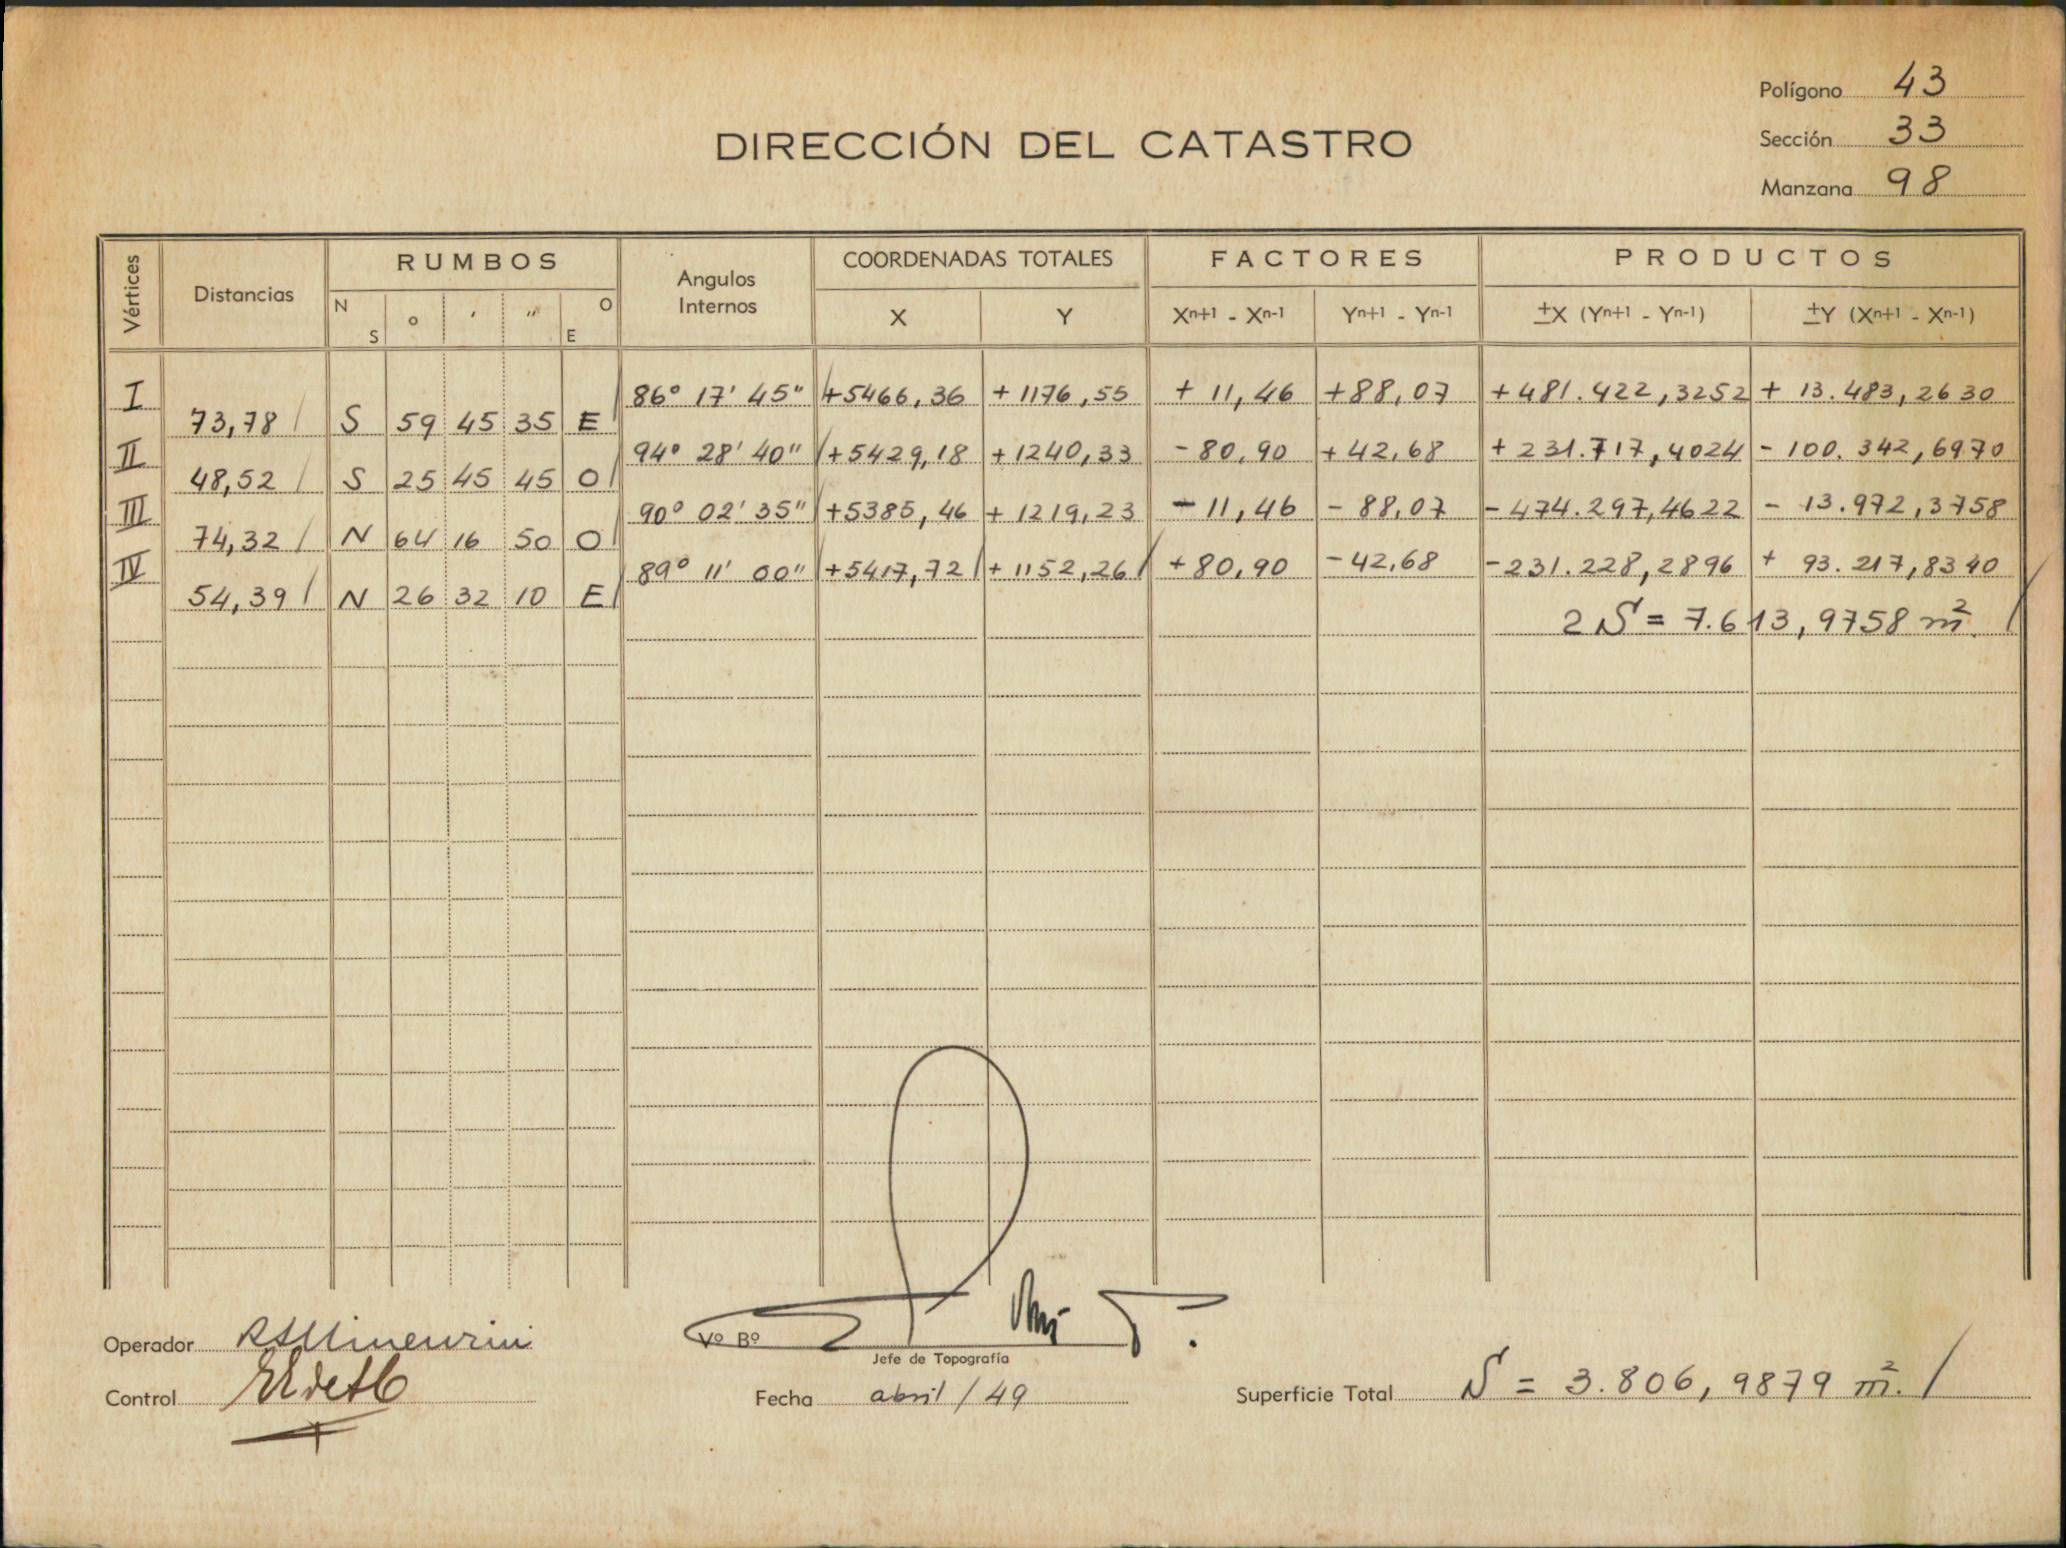 Polígono 43
DIRECCIÓN DEL CATASTRO
Sección 33
Manzana 98
Vértices Distancias RUMBOS Angulos Internos COORDENADAS TOTALES FACTORES PRODUCTOS
N S ° ' " O E X Y Xn+1 - Xn-1 Yn+1 - Yn-1 ±X (Yn+1 - Yn-1) ±Y (Xn+1 - Xn-1)
I 86° 17' 45" +5466,36 +1176,55 + 11,46 +88,07 +481.422,3252 + 13.483,2630
73,78 S 59 45 35 E
II 94° 28' 40" +5429,18 +1240,33 -80,90 +42,68 +231.717,4024 - 100.342,6970
48,52 S 25 45 45 O
III 90° 02' 35" +5385,46 +1219,23 -11,46 - 88,07 -474.297,4622 - 13.972,3758
74,32 N 64 16 50 O
IV 89° 11' 00" +5417,72 +1152,26 +80,90 -42,68 -231.228,2896 + 93.217,8340
54,39 N 26 32 10 E
2 S = 7.613,9758 m².
Operador
Vº Bº
Jefe de Topografía
Control
Fecha abril / 49
Superficie Total S = 3.806,9879 m².